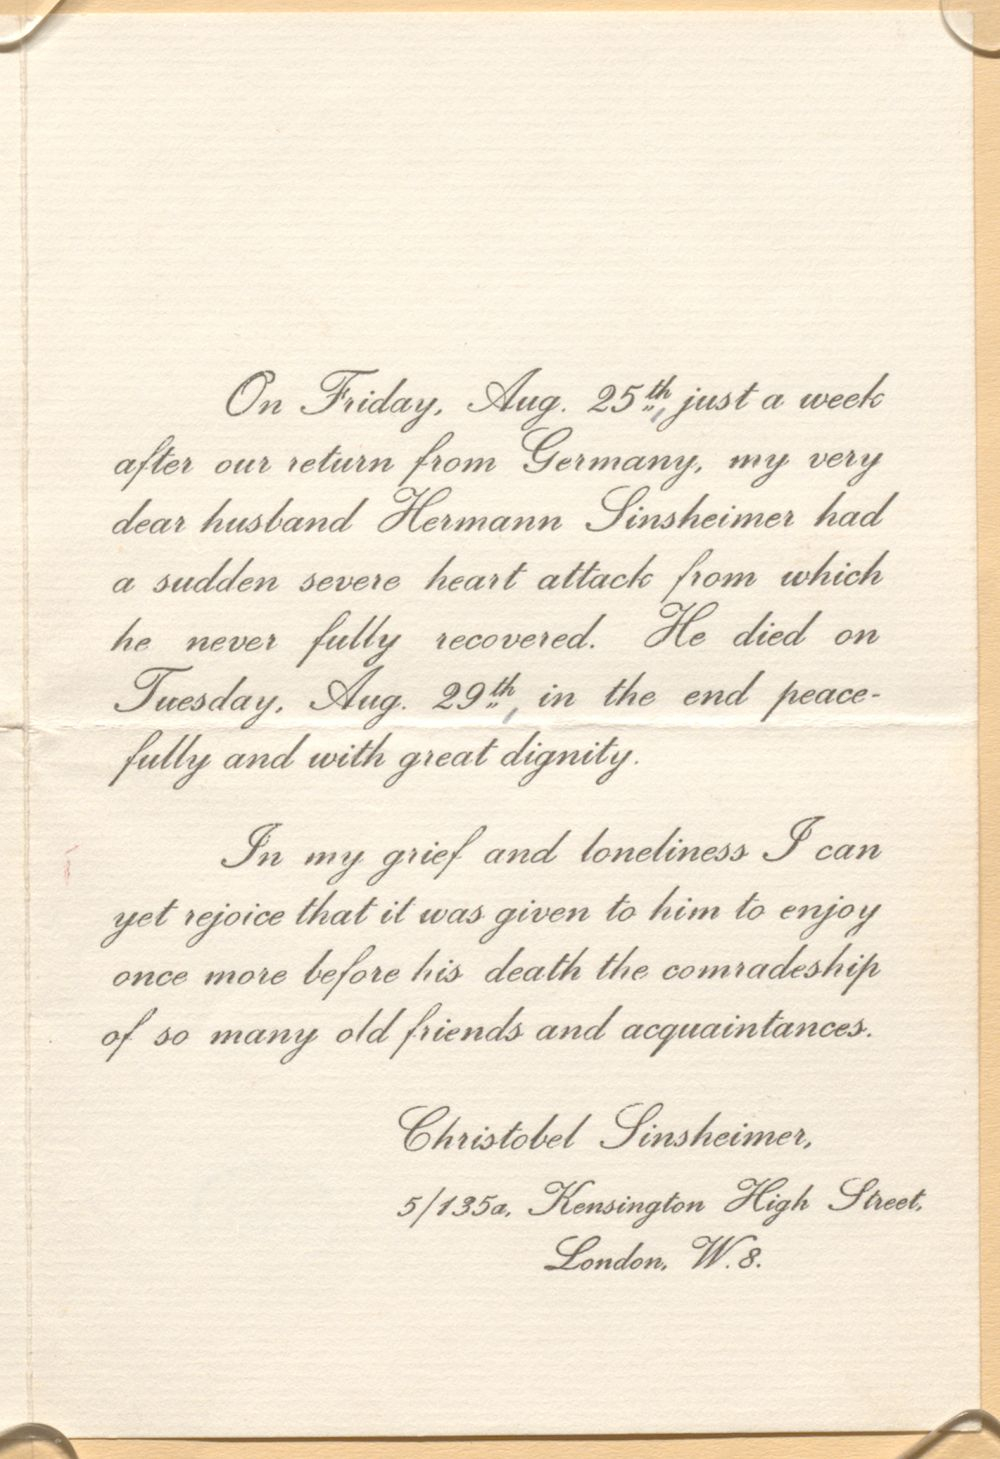 On Friday, Aug. 25th, just a week
after our return from Germany, my very
dear husband Hermann Sinsheimer had
a sudden severe heart attack from which
he never fully recovered. He died on
Tuesday, Aug. 29th, in the end peace-
fully and with great dignity.
In my grief and loneliness I can
yet rejoice that it was given to him to enjoy
once more before his death the comradeship
of so many old friends and acquaintances.
Christobel Sinsheimer,
5/135a, Kensington High Street,
London, W.8.